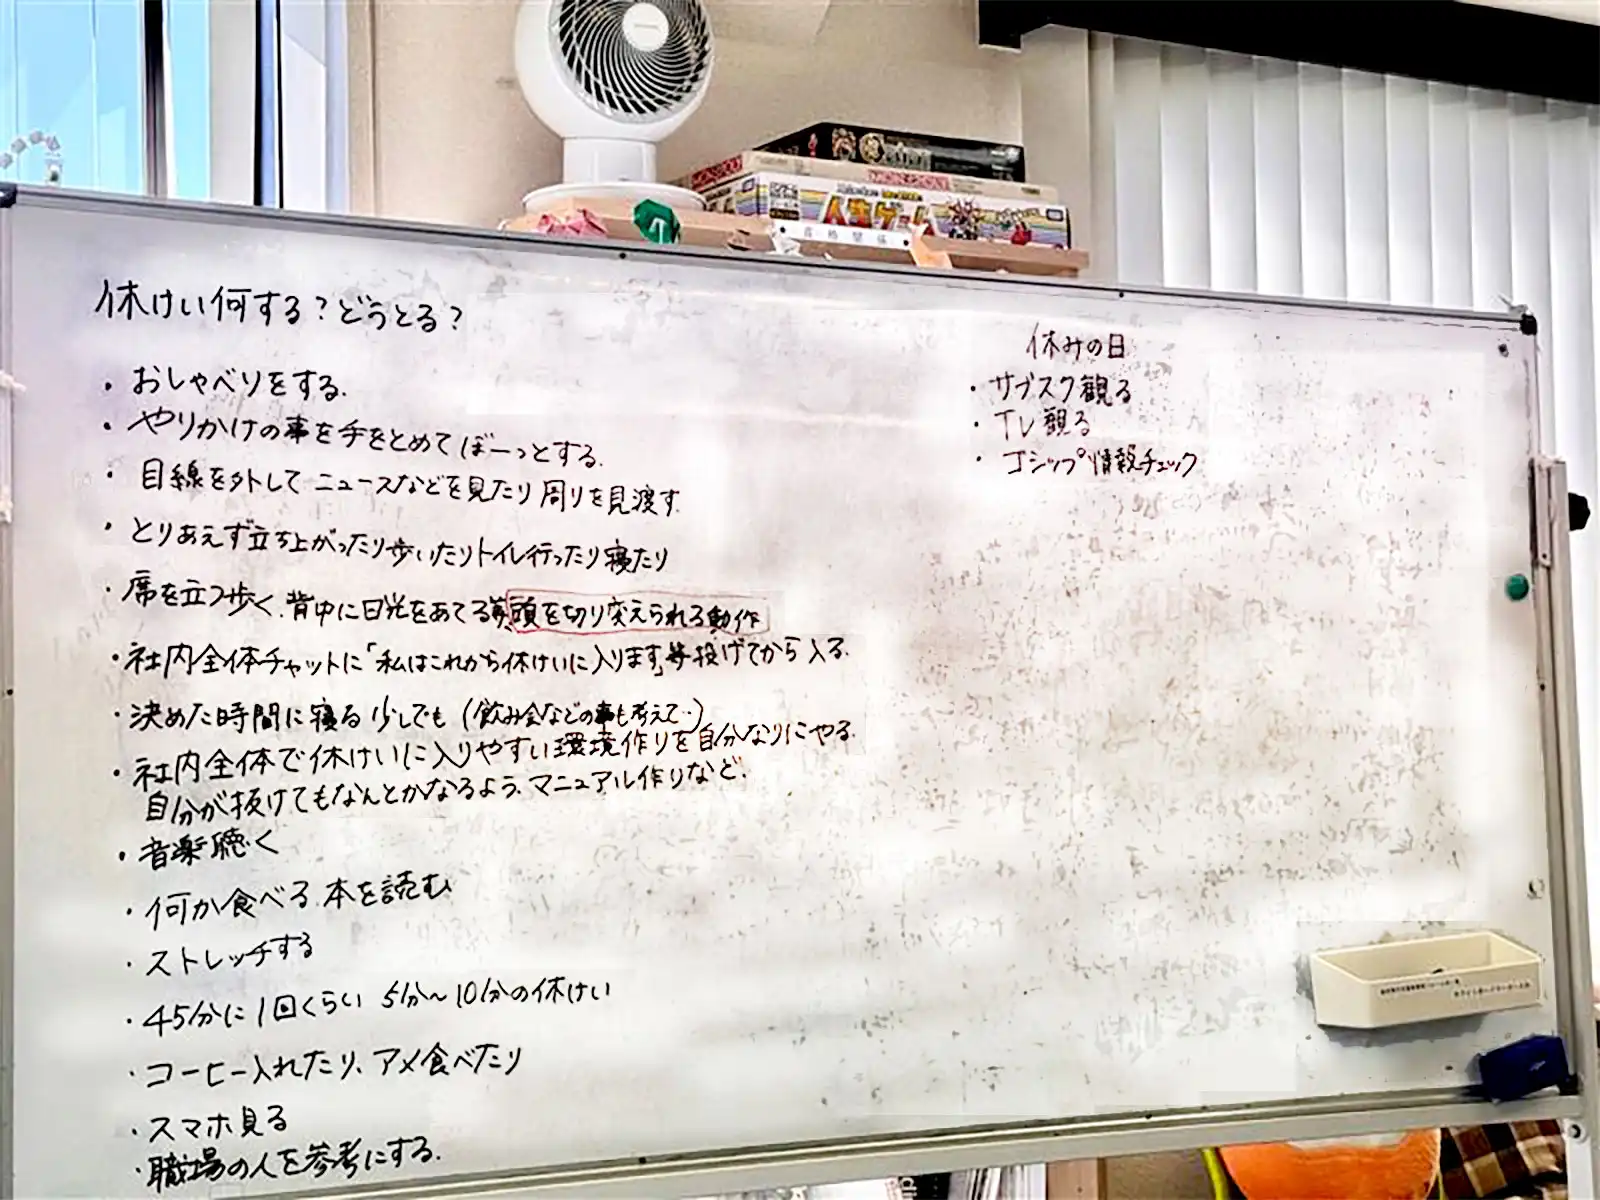 人生ゲーム
MONOPOLY
休けい何する？どうとる？
・おしゃべりをする.
・やりかけの事を手をとめてぼーっとする.
・目線を外してニュースなどを見たり周りを見渡す.
・とりあえず立ち上がったり歩いたりトイレ行ったり寝たり
・席を立つ歩く.背中に日光をあてる等、頭を切り変えられる動作
・社内全体チャットに「私はこれから休けいに入ります」等投げてから入る.
・決めた時間に寝る少しでも(飲み会などの事も考えて…)
・社内全体で休けいに入りやすい環境作りを自分なりにやる.
自分が抜けてもなんとかなるよう、マニュアル作りなど.
・音楽聴く
・何か食べる.本を読む
・ストレッチする
・45分に1回くらい 5分〜10分の休けい
・コーヒー入れたり、アメ食べたり
・スマホ見る
・職場の人を参考にする.
休みの日
・サブスク観る
・TV観る
・ゴシップ情報チェック